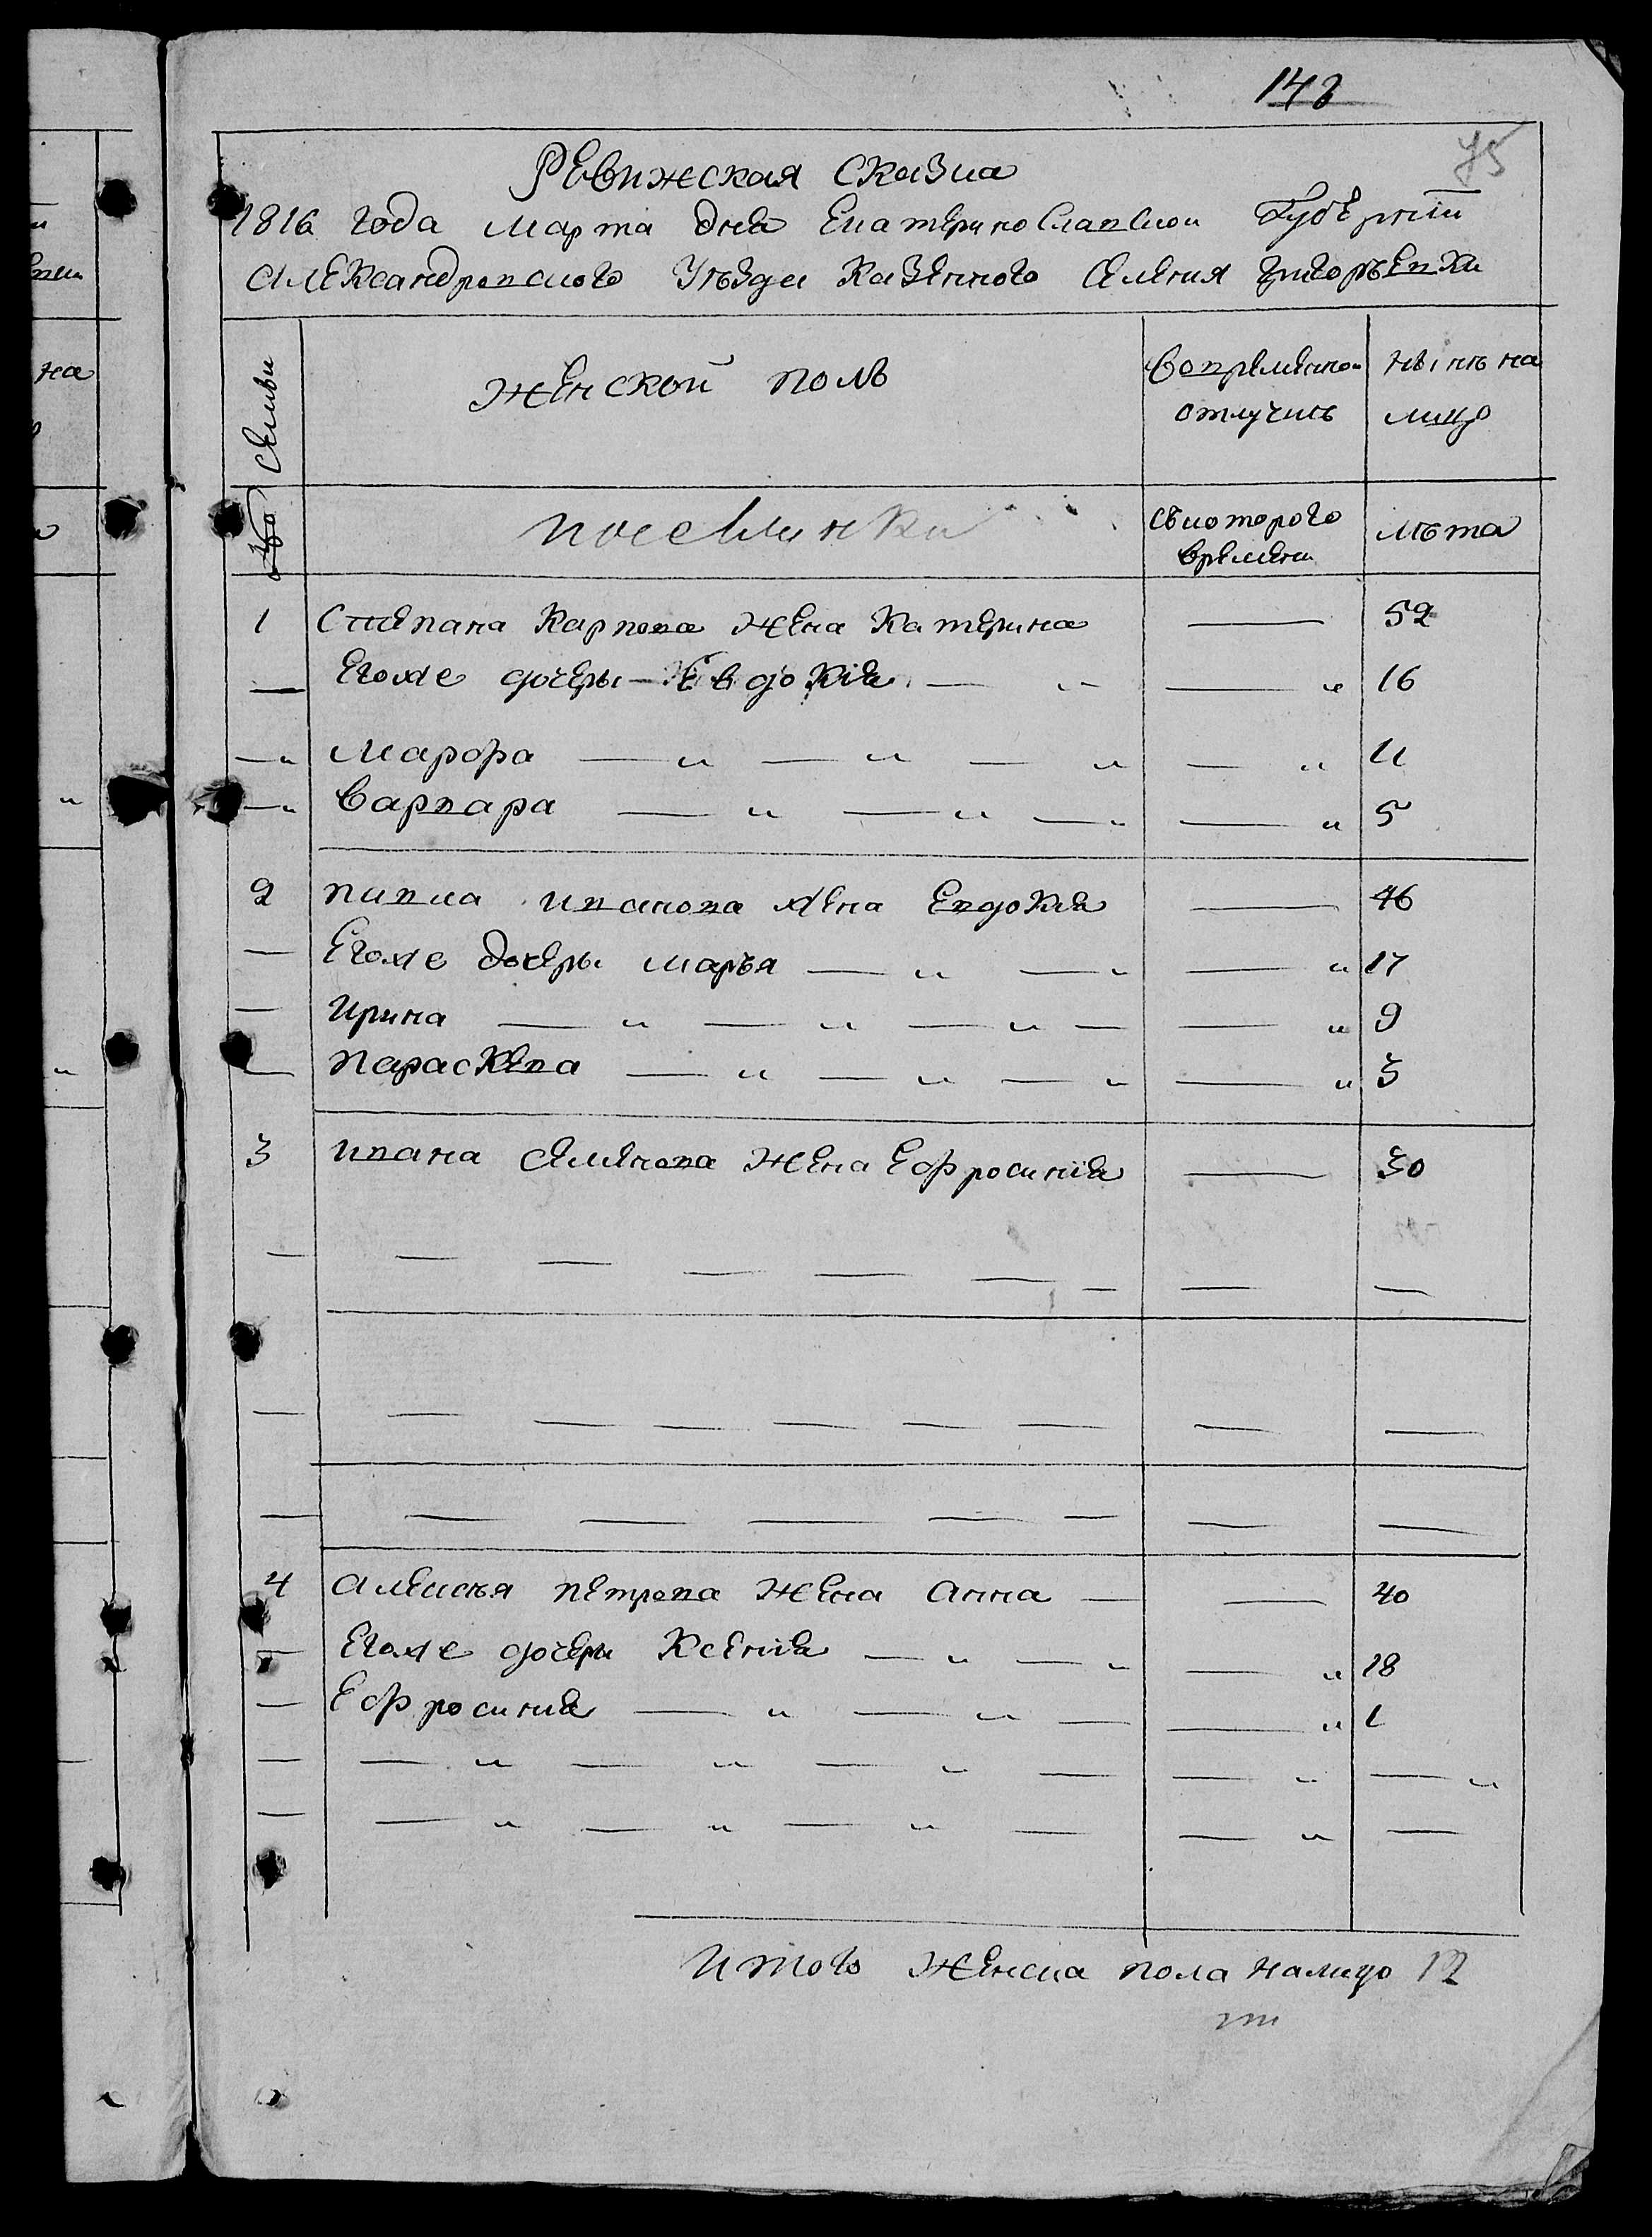 148
75
Ревижская Сказка
1816 года Марта дня Екатеринославской Губерніи
Александровского Уѣзда Казенного Селения Григорьевки
№ Семьи
Женской полъ
Вовременной отлучке
Нынѣ на лицо
поселянки
Съ которого времени
лѣта
1 Степана Карпова Жена Катерина — 52
— Егоже дочеры — Евдокія — „ — „ 16
— „ Марфа — „ — „ — „ — „ 11
— „ Варвара — „ — „ — „ — „ 5
2 Пивна Иванова Жена Евдокия — 46
— Егоже дочеры Марья — „ — „ — „ 17
— Ирина — „ — „ — „ — — „ 9
— Параскева — „ — „ — „ — „ 3
3 Ивана Семенова Жена Ефросинія — 30
4 Алексѣя Петрова Жена Анна — — 40
— Егоже дочеры Ксения — „ — „ — „ 18
— Ефросиния — „ — „ — — „ 1
Итого Женска пола налицо 12